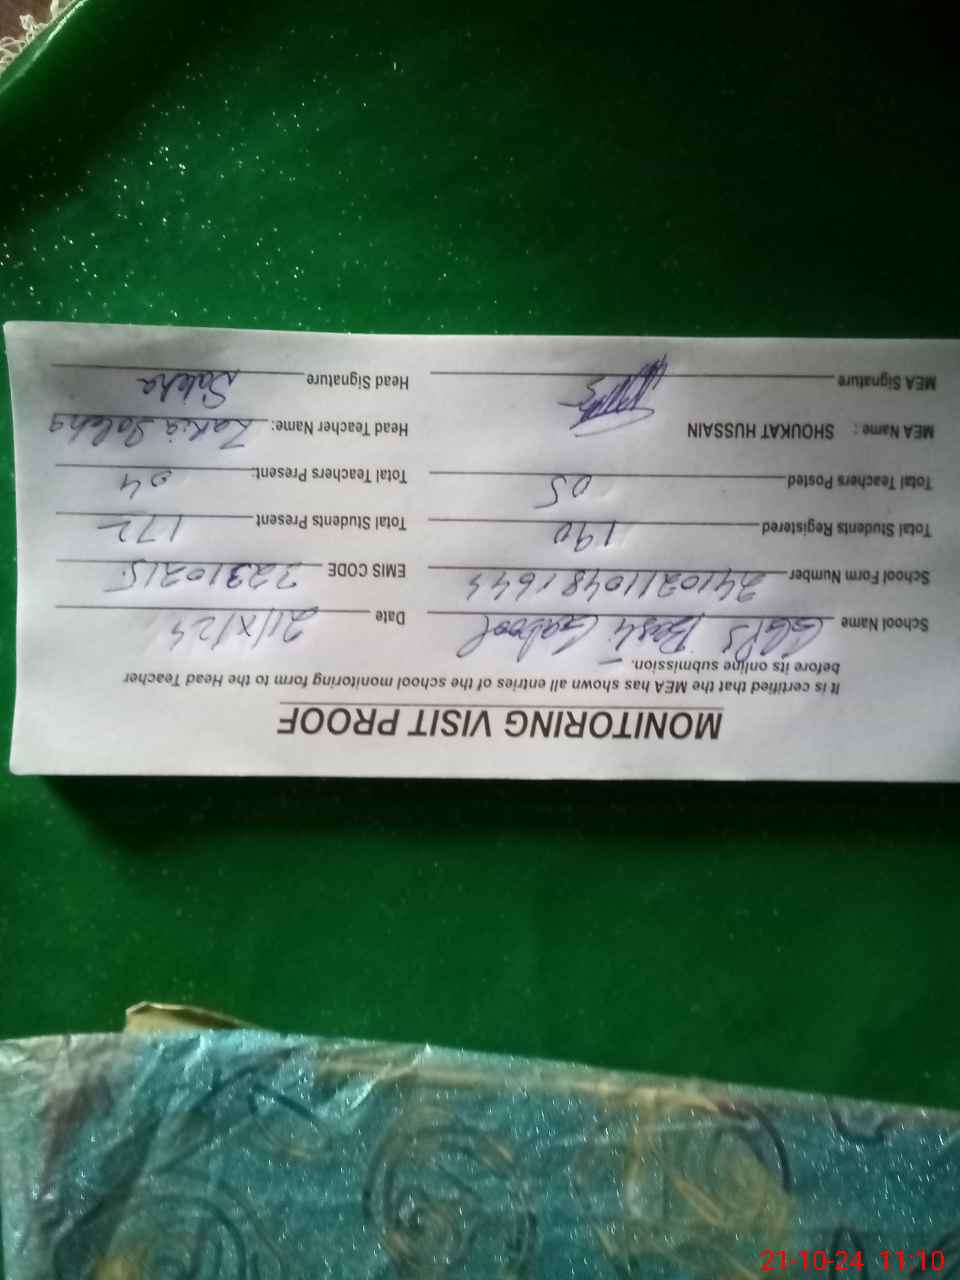 MONITORING VISIT PROOF
It is certified that the MEA has shown all entries of the school monitoring form to the Head Teacher
before its online submission.
School Name GGPS Basti Gabool Date 21/X/24
School Form Number EMIS CODE 32310215
Total Students Registered 190 Total Students Present 172
Total Teachers Posted 05 Total Teachers Present: 04
MEA Name : SHOUKAT HUSSAIN Head Teacher Name: Zakia Saleha
MEA Signature Head Signature Saleha
21-10-24 11:10